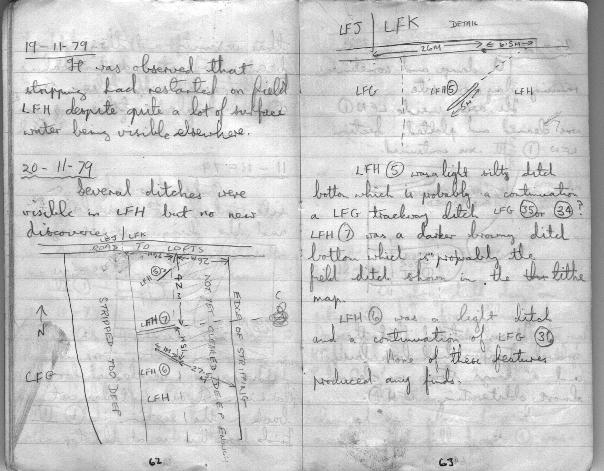 19-11-79
It was observed that
stripping had restarted on field
LFH despite quite a lot of surface
water being visible elsewhere.
20-11-79
Several ditches were
visible in LFH but no new
discoveries.
LFJ / LFK
ROAD TO LOFTS
26M
LFH 5
LFH 7
LFH 6
LFH
STRIPPED TOO DEEP
NOT YET CLEARED DEEP ENOUGH
EDGE OF STRIPPING
N
LFG
62
LFJ | LFK DETAIL
26M 6.5M
LFG LFH 5 LFH
5M
LFH 5 was a light silty ditch
bottom which is probably a continuation
a LFG trackway ditch LFG 35 or 34?
LFH 7 was a darker browny ditch
bottom which is probably the
field ditch shown in the tithe
map.
LFH 6 was a light ditch
and a continuation of LFG 31
None of these features
produced any finds.
63